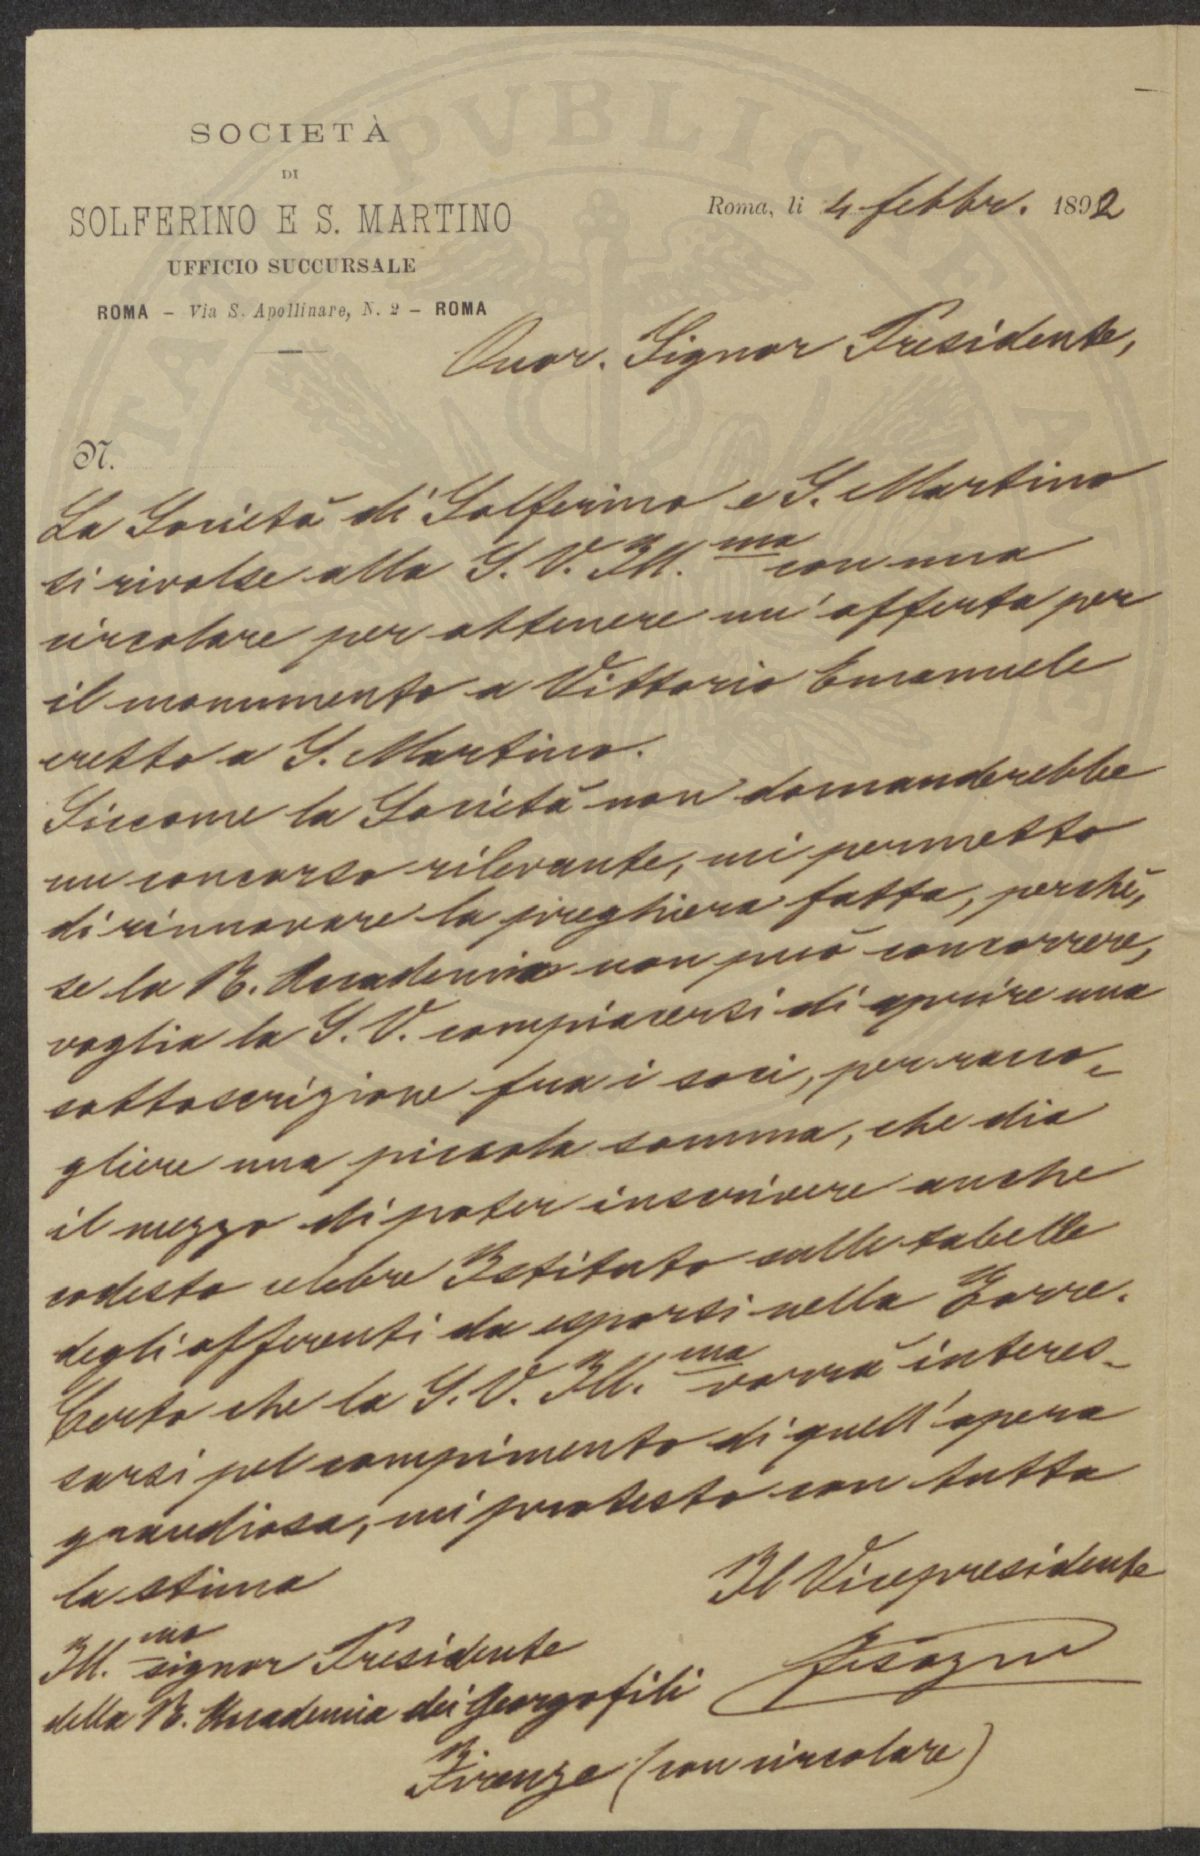 SOCIETÀ
DI
SOLFERINO E S. MARTINO
UFFICIO SUCCURSALE
ROMA – Via S. Apollinare, N. 2 – ROMA
Roma, li 4 febbr. 1892
Onor. Signor Presidente,
N.
La Società di Solferino e S. Martino
si rivolse alla S. V. Ill.ma con una
circolare per ottenere un'offerta per
il monumento a Vittorio Emanuele
eretto a S. Martino.
Siccome la Società non domanderebbe
un concorso rilevante, mi permetto
di rinnovare la preghiera fatta, perchè,
se la R. Accademia non può concorrere,
voglia la S. V. compiacersi di aprire una
sottoscrizione fra i soci, per racco-
gliere una piccola somma, che dia
il mezzo di poter inscrivere anche
codesto celebre Istituto sulle tabelle
degli offerenti da esporsi nella Torre.
Certo che la S. V. Ill.ma vorrà interes-
sarsi pel compimento di quell'opera
grandiosa, mi protesto con tutta
la stima
Il Vicepresidente
Ill.mo signor Presidente
della R. Accademia dei Georgofili
Firenze (con circolare)
PUBLICAE